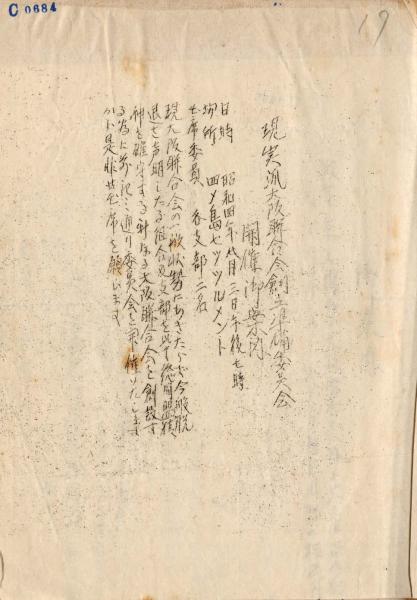 C 0684
19
現実派大阪聯合会創立準備委員会
開催御案内
日時 昭和四年 月三日午後七時
場所 四メ島セツツルメント
出席委員 各支部二名
現大阪聯合会の一般状勢にあきたらず今般脱
退を声明したる組合及支部を以て総同盟精
神を確守する新なる大阪聯合会を創設す
る為に前記の通り委員会を開催いたします
から是非共出席を願ひます